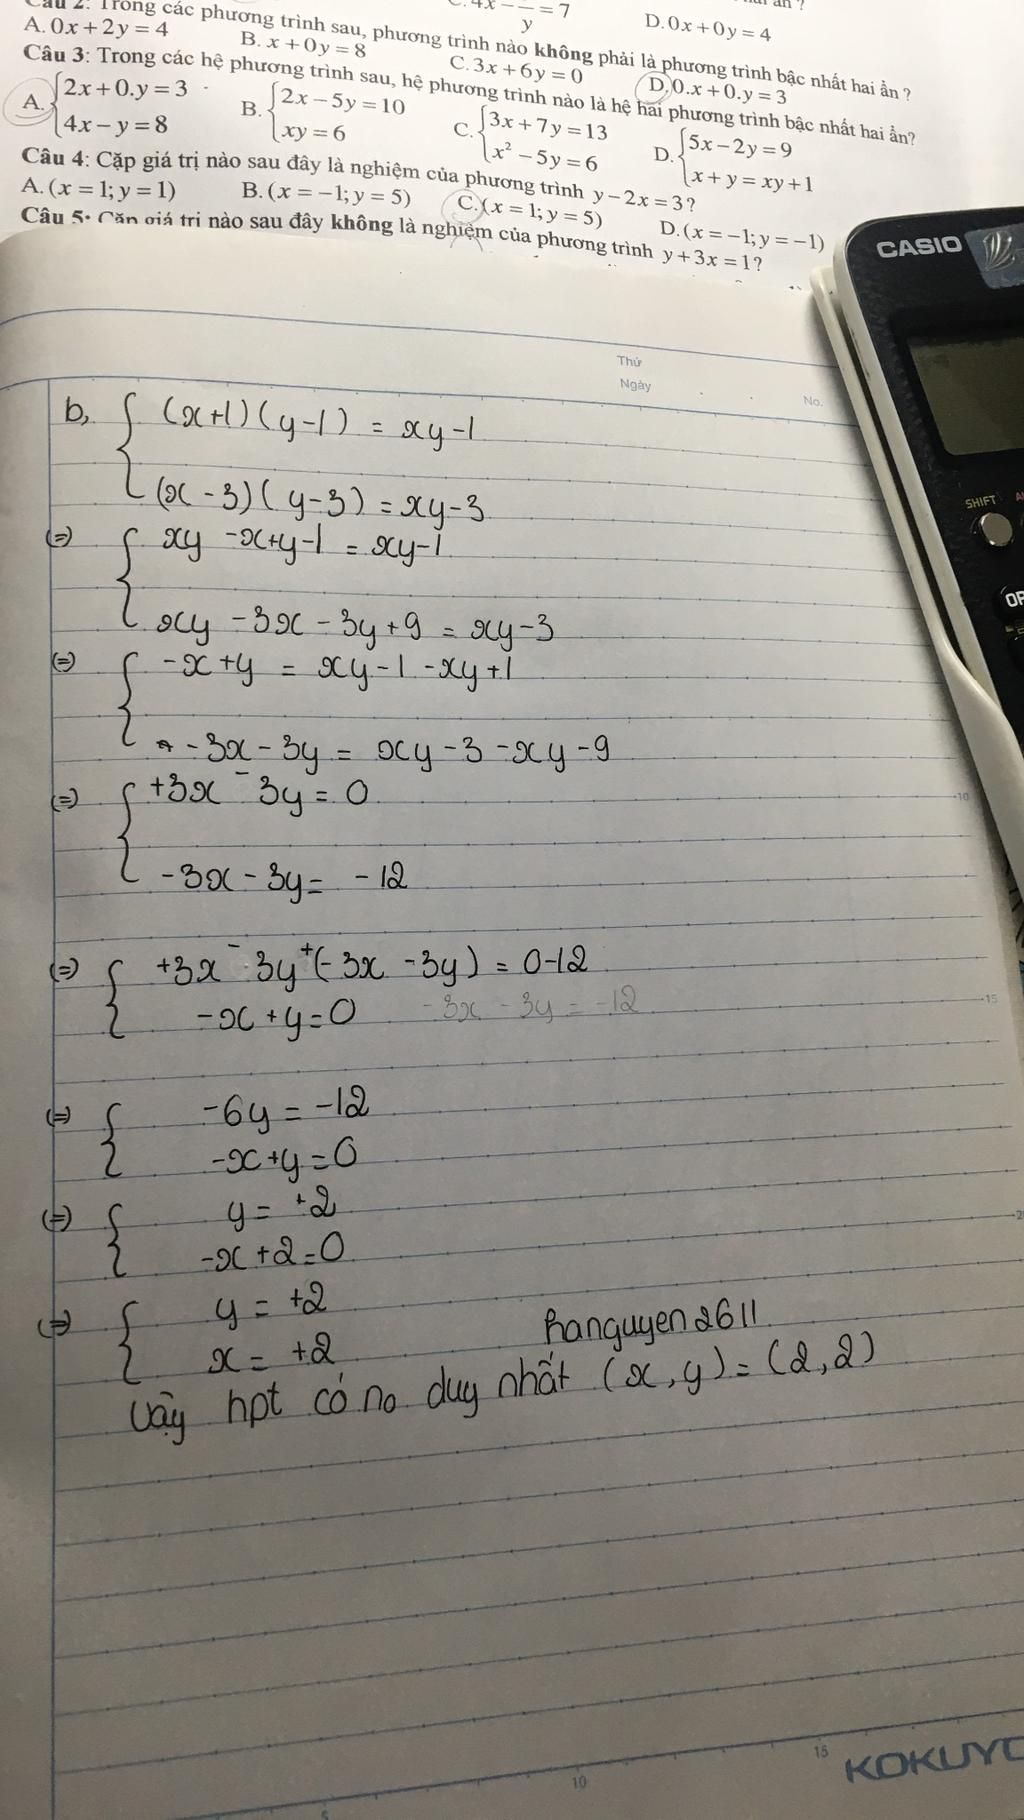 Câu 2: Trong các phương trình sau, phương trình nào không phải là phương trình bậc nhất hai ẩn ?
C. 4x - — = 7
y
D. 0x + 0y = 4
A. 0x + 2y = 4 B. x + 0y = 8 C. 3x + 6y = 0 D. 0.x + 0.y = 3
Câu 3: Trong các hệ phương trình sau, hệ phương trình nào là hệ hai phương trình bậc nhất hai ẩn?
A. { 2x + 0.y = 3
4x - y = 8
B. { 2x - 5y = 10
xy = 6
C. { 3x + 7y = 13
x² - 5y = 6
D. { 5x - 2y = 9
x + y = xy + 1
Câu 4: Cặp giá trị nào sau đây là nghiệm của phương trình y - 2x = 3?
A. (x = 1; y = 1) B. (x = -1; y = 5) C. (x = 1; y = 5) D. (x = -1; y = -1)
Câu 5: Cặp giá trị nào sau đây không là nghiệm của phương trình y + 3x = 1?
CASIO
SHIFT
Thứ
Ngày
No.
b, { (x+1)(y-1) = xy-1
(x-3)(y-3) = xy-3
(=) { xy -x+y-1 = xy-1
xy -3x -3y+9 = xy-3
(=) { -x+y = xy-1 -xy+1
-3x-3y = xy-3-xy-9
(=) { +3x - 3y = 0
-3x-3y = -12
10
(=) { +3x - 3y +(-3x -3y) = 0-12
-x+y=0 -3x -3y = -12
15
(=) { -6y = -12
-x+y=0
(=) { y = +2
-x+2=0
(=) { y = +2
x = +2
hanguyen2611
Vậy hpt có no duy nhất (x,y)=(2,2)
5 10 15
KOKUYO